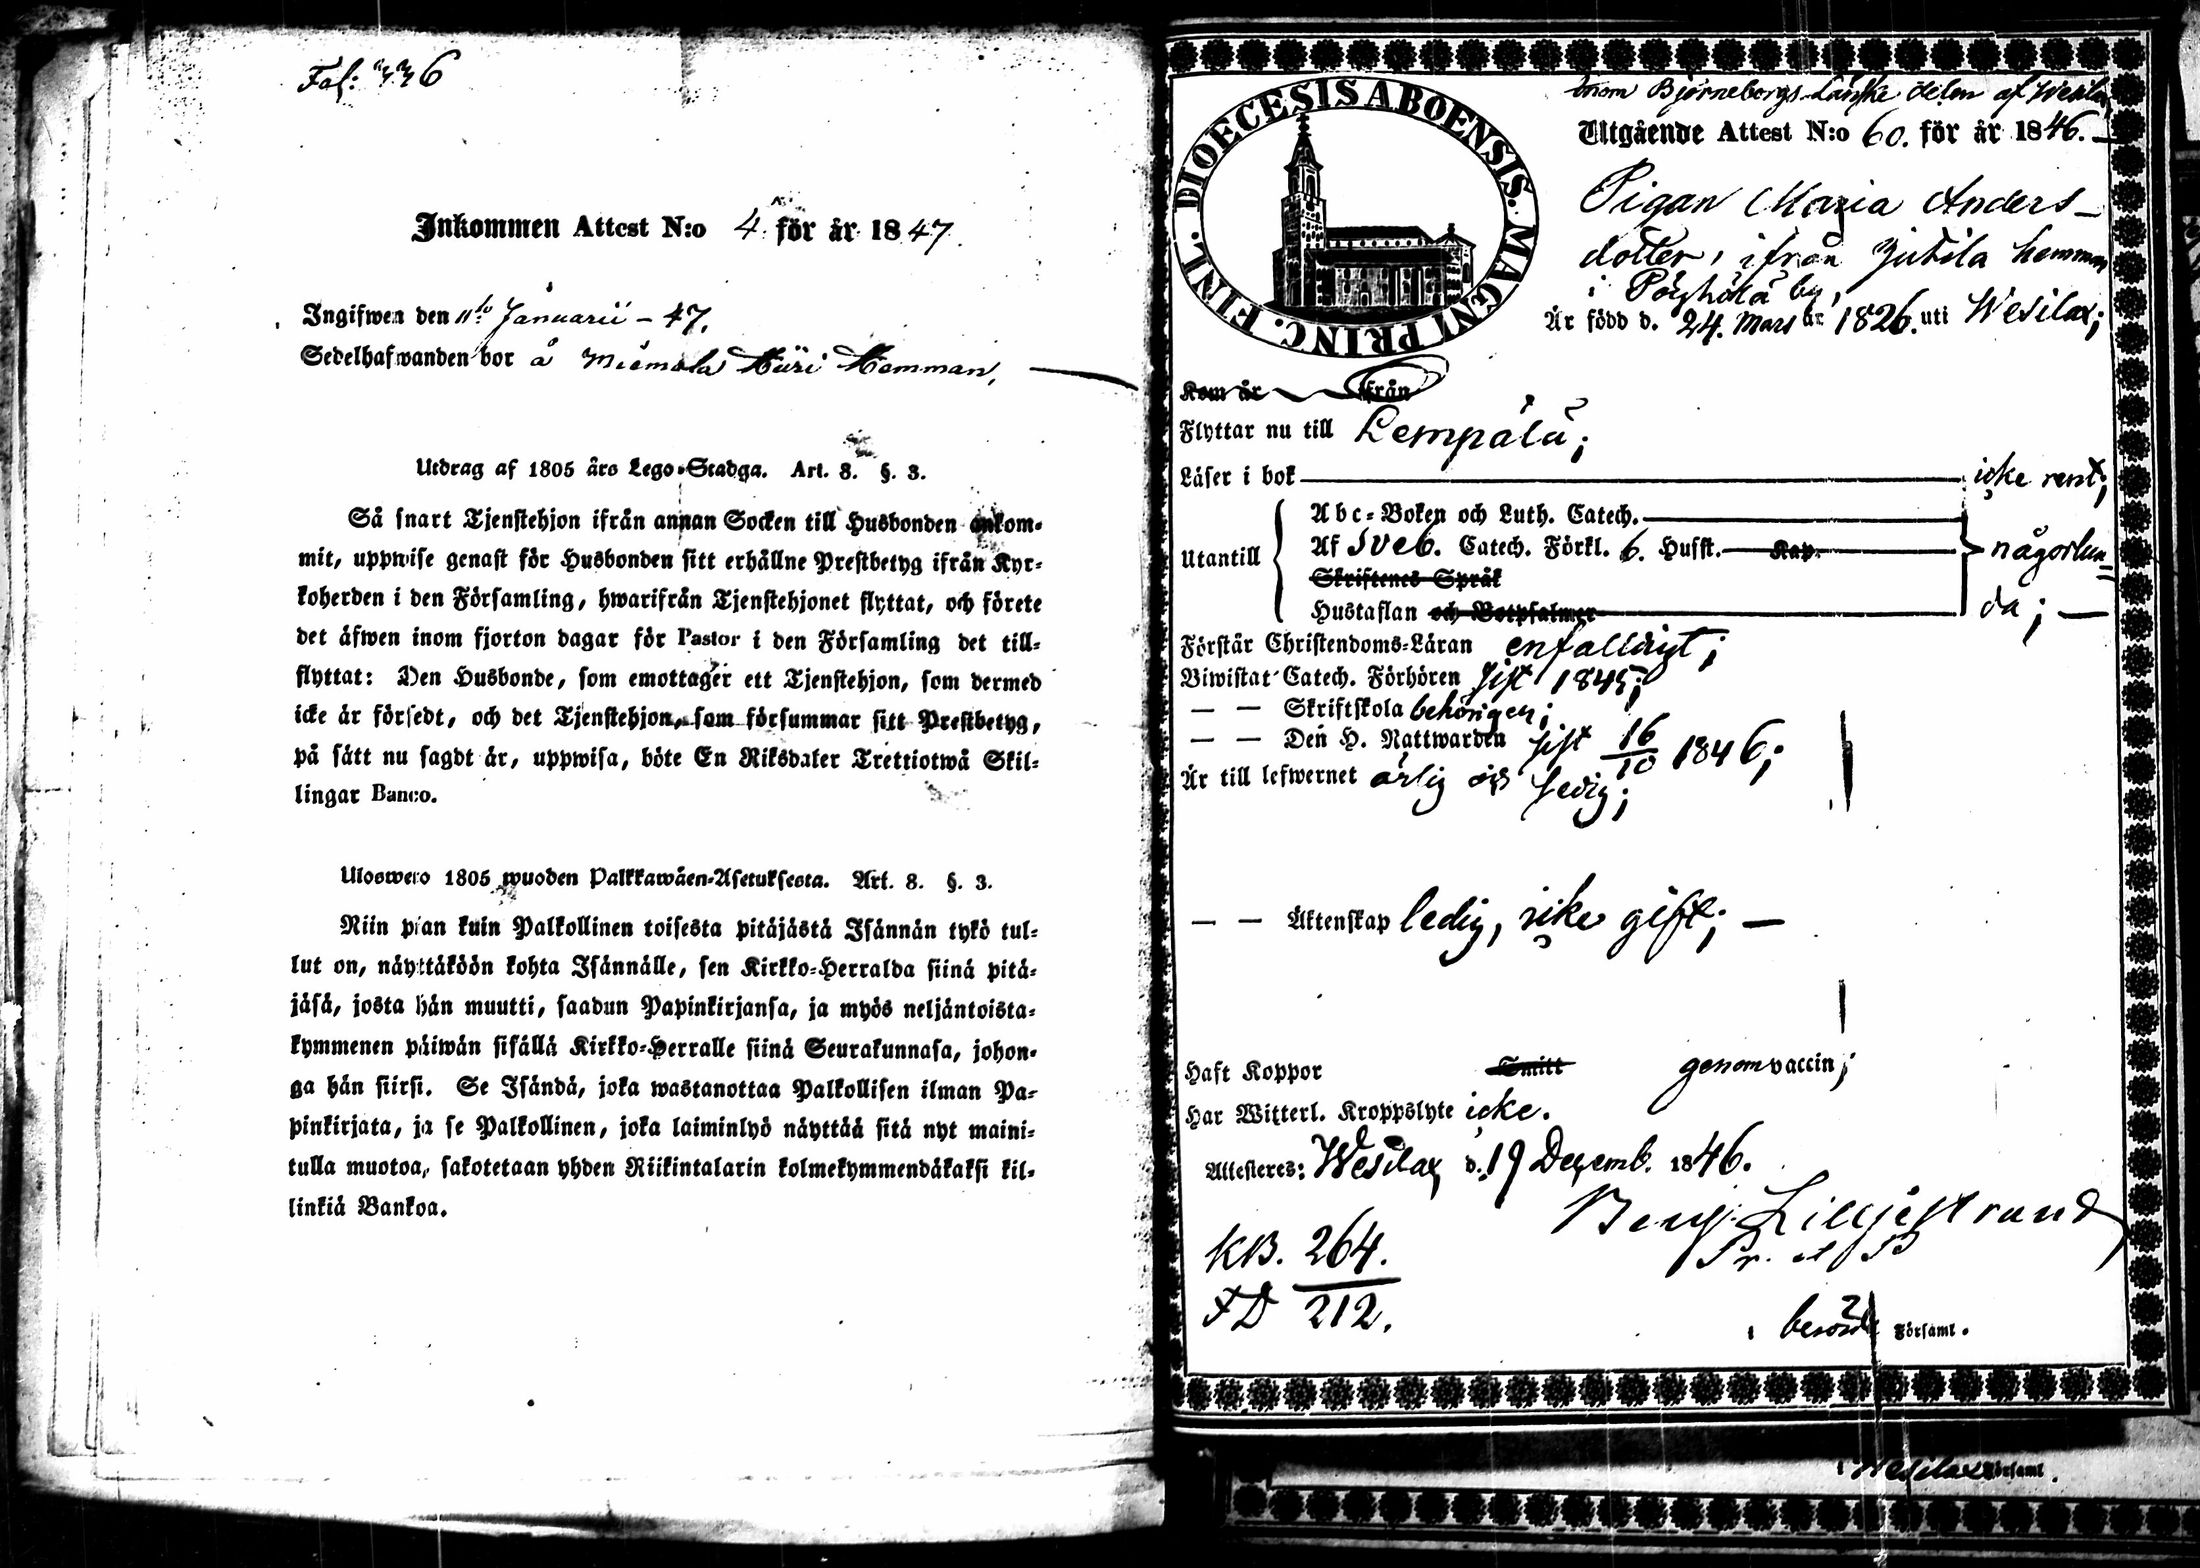 Fol: 336
Inkommen Attest N:o 4. för år 1847.
Ingifwen den 11te Januarii – 47.
Sedelhafwanden bor å Miemola Häri Hemman,
Utdrag af 1805 års Lego-Stadga. Art. 8. §. 3.
Så snart Tjenstehjon ifrån annan Socken till Husbonden ankom-
mit, uppwise genast för Husbonden sitt erhållne Prestbetyg ifrån Kyr-
koherden i den Församling, hwarifrån Tjenstehjonet flyttat, och förete
det äfwen inom fjorton dagar för Pastor i den Församling det till-
flyttat: Den Husbonde, som emottager ett Tjenstehjon, som dermed
icke är försedt, och det Tjenstehjon, som försummar sitt Prestbetyg,
på sätt nu sagdt är, uppwisa, böte En Riksdaler Trettiotwå Skil-
lingar Banco.
Ulosweto 1805 wuoden Palkkawäen-Asetuksesta. Art. 8. §. 3.
Niin pian kuin Palkollinen toisesta pitäjästä Isännän tykö tul-
lut on, näyttäköön kohta Isännälle, sen Kirkko-Herralda siinä pitä-
jäsä, josta hän muutti, saadun Papinkirjansa, ja myös neljäntoista-
kymmenen päiwän sisällä Kirkko-Herralle siinä Seurakunnasa, johon-
ga hän siirsi. Se Isändä, joka wastanottaa Palkollisen ilman Pa-
pinkirjata, ja se Palkollinen, joka laiminlyö näyttää sitä nyt maini-
tulla muotoa, sakotetaan yhden Riikintalarin kolmekymmendäkaksi kil-
linkiä Bankoa.
DIOECESIS ABOENSIS. MAGNI PRINC. FINL.
Inom Björneborgs Länske delen af Wesilax
Utgående Attest N:o 60. för år 1846.
Pigan Maria Anders-
dotter, ifrån Jutila hemman
i Pöyhölä by,
Är född d. 24. Mars år 1826. uti Wesilax;
Kom år ifrån
Flyttar nu till Lempälä;
Läser i bok icke rent;
Abc-Boken och Luth. Catech.
Utantill Af Sveb. Catech. Förkl. 6. Husst. Kap. någorlun-
Skriftenes Språk
Hustaflan och Botpsalmer da;
Förstår Christendoms-Läran enfalldigt;
Biwistat Catech. Förhören sist 1845;
— — Skriftskola behörigen;
— — Den H. Nattwarden sist 16/10 1846;
Är till lefwernet ärlig och sedig;
— — Äktenskap ledig, icke gift; —
Haft Koppor Smitt genom vaccin;
Har Witterl. Kroppslyte icke.
Attesteres: Wesilax d. 19 Decemb. 1846.
Benj. Lilljestrand
Pr. et P
KB. 264.
FD 212.
i berörde Församl.
i Wesilax Församl.